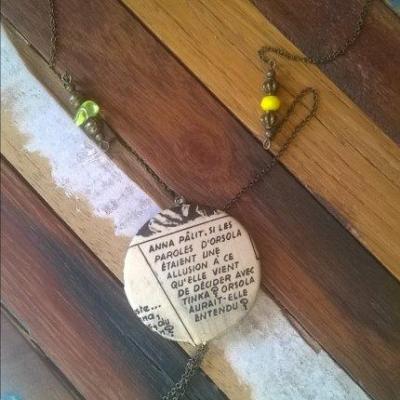 ANNA PÂLIT. SI LES
PAROLES D'ORSOLA
ÉTAIENT UNE
ALLUSION À CE
QU'ELLE VIENT
DE DÉCIDER AVEC
TINKA ? ORSOLA
AURAIT-ELLE
ENTENDU ?